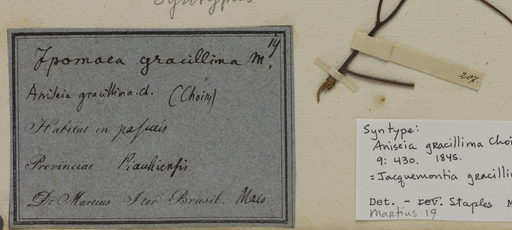 Syntypus
19
Ipomaea gracillima m.
Aniseia gracillima. ch. (Choisy)
Habitat in pascuis
Provinciae Piauhiensis
Dr Martius Iter Brasil. Maio
207
Syntype:
Aniseia gracillima Choi
9: 430. 1845.
=Jacquemontia gracillim
Det. – rev. Staples M
Martius 19